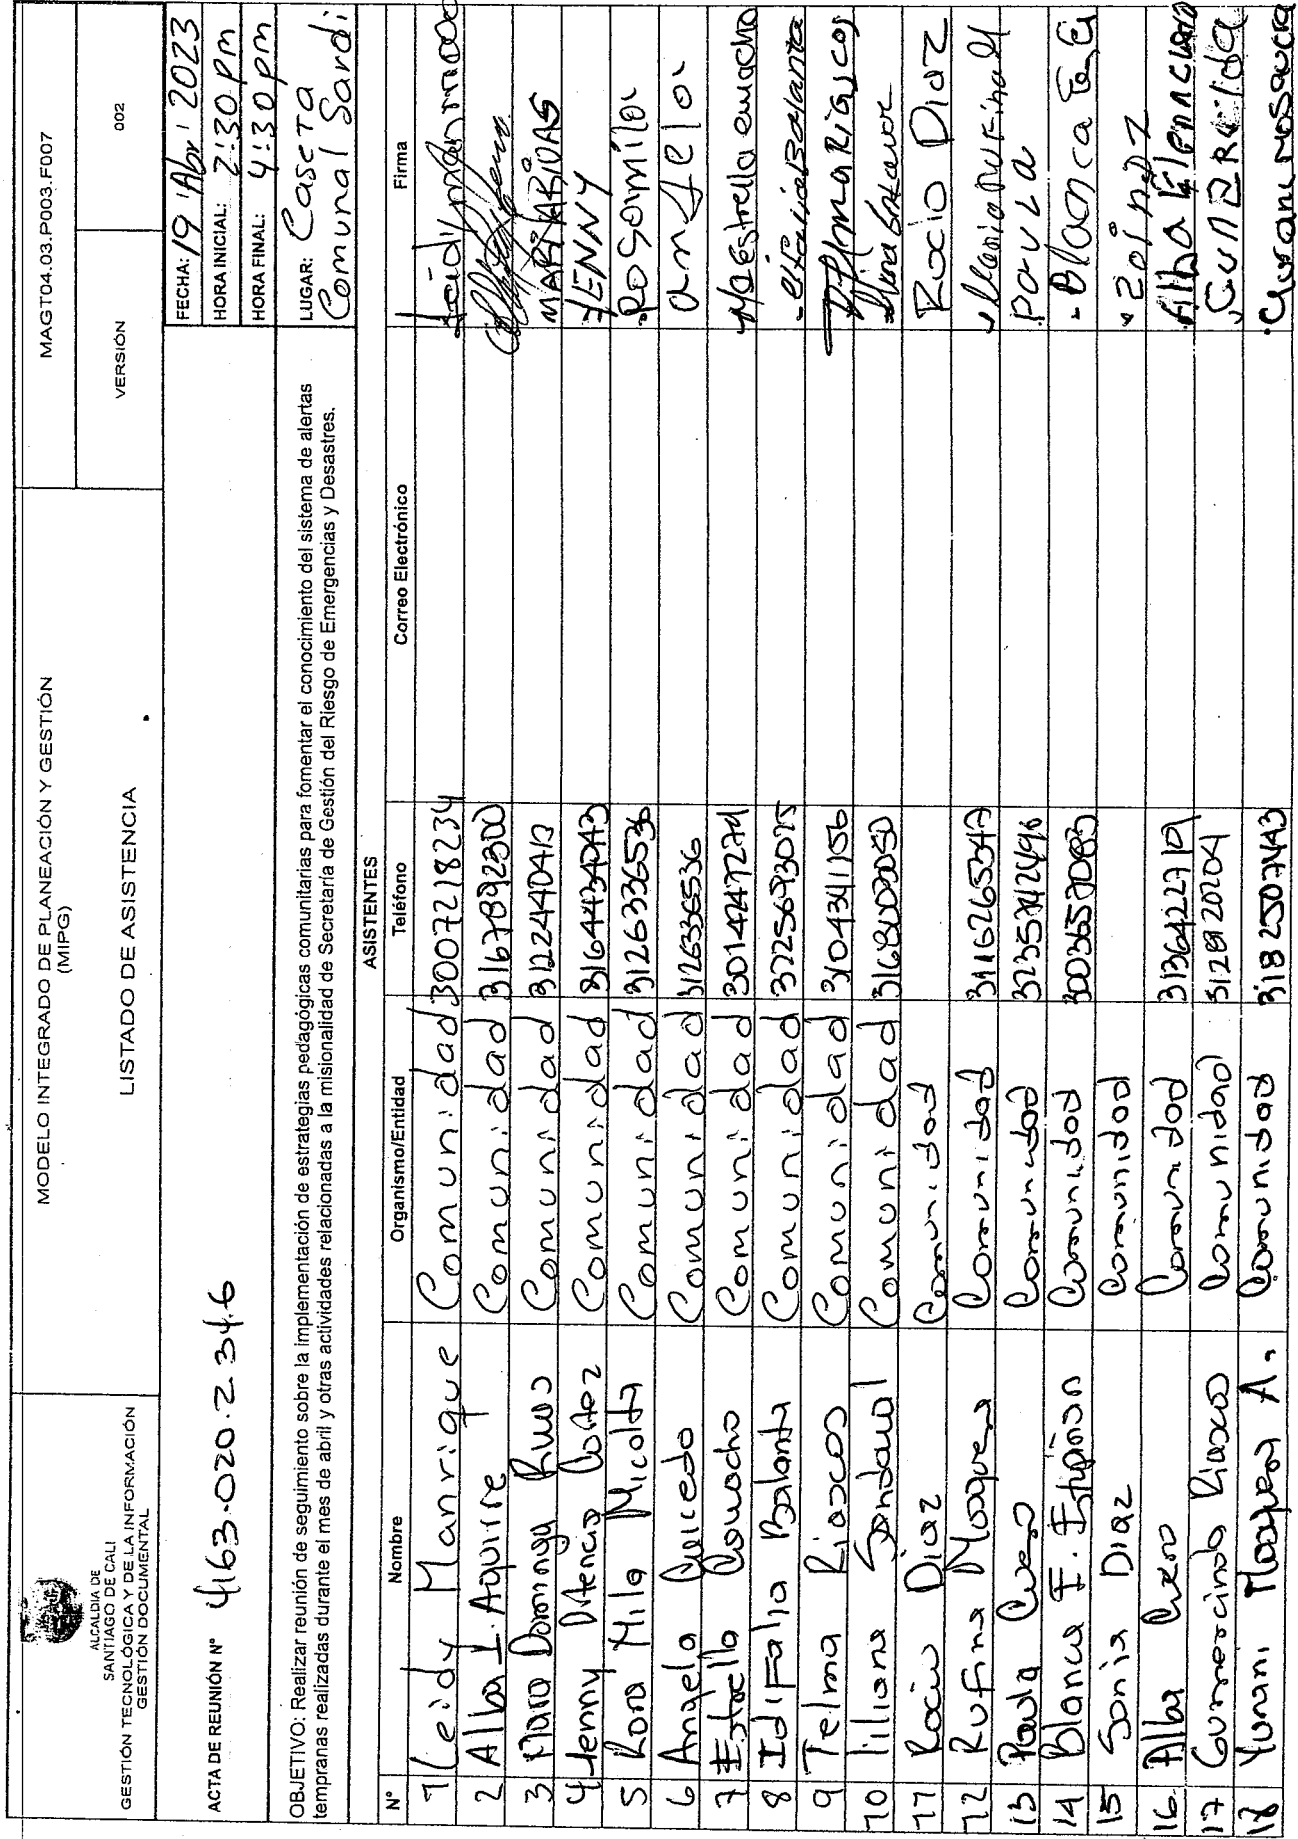 ALCALDIA DE
SANTIAGO DE CALI
GESTIÓN TECNOLÓGICA Y DE LA INFORMACIÓN
GESTIÓN DOCUMENTAL
MODELO INTEGRADO DE PLANEACIÓN Y GESTIÓN
(MIPG)
LISTADO DE ASISTENCIA
MAGT04.03.P003.F007
VERSIÓN 002
ACTA DE REUNIÓN N° 4163.020.2.34.6
FECHA: 19 Abri 2023
HORA INICIAL: 2:30 pm
HORA FINAL: 4:30 pm
OBJETIVO: Realizar reunión de seguimiento sobre la implementación de estrategias pedagógicas comunitarias para fomentar el conocimiento del sistema de alertas
tempranas realizadas durante el mes de abril y otras actividades relacionadas a la misionalidad de Secretaría de Gestión del Riesgo de Emergencias y Desastres.
LUGAR: Caseta
Comunal Sardi
ASISTENTES
N° Nombre Organismo/Entidad Teléfono Correo Electrónico Firma
1 Leidy Manrique Comunidad 3007218234
2 Alba I. Aquire Comunidad 3167892300
3 Comunidad 3122440413
4 Yenny Atencio Comunidad 3164434043 YENNY
5 Rosa Mila Micolta Comunidad 3126336536 Rosamila
6 Angela Quicedo Comunidad 312636536 angela
7 Estrella Camacho Comunidad 3014247274 estrella camacho
8 Idifalia Balanta Comunidad
9 Telma Riascos Comunidad 3104341156
10 Liliana Sandoval Comunidad
11 Rocio Diaz Comunidad Rocio Diaz
12 Rufina Mosquera Comunidad 3116265347
13 Paula Cuero Comunidad Paula
14 Blanca F. Estupiñan Comunidad Blanca
15 Sonia Diaz Comunidad
16 Alba Cuero Comunidad 3136422719 Alba
17 Gumercindo Riascos Comunidad
18 Yurani Mosquera A. Comunidad 3182507443